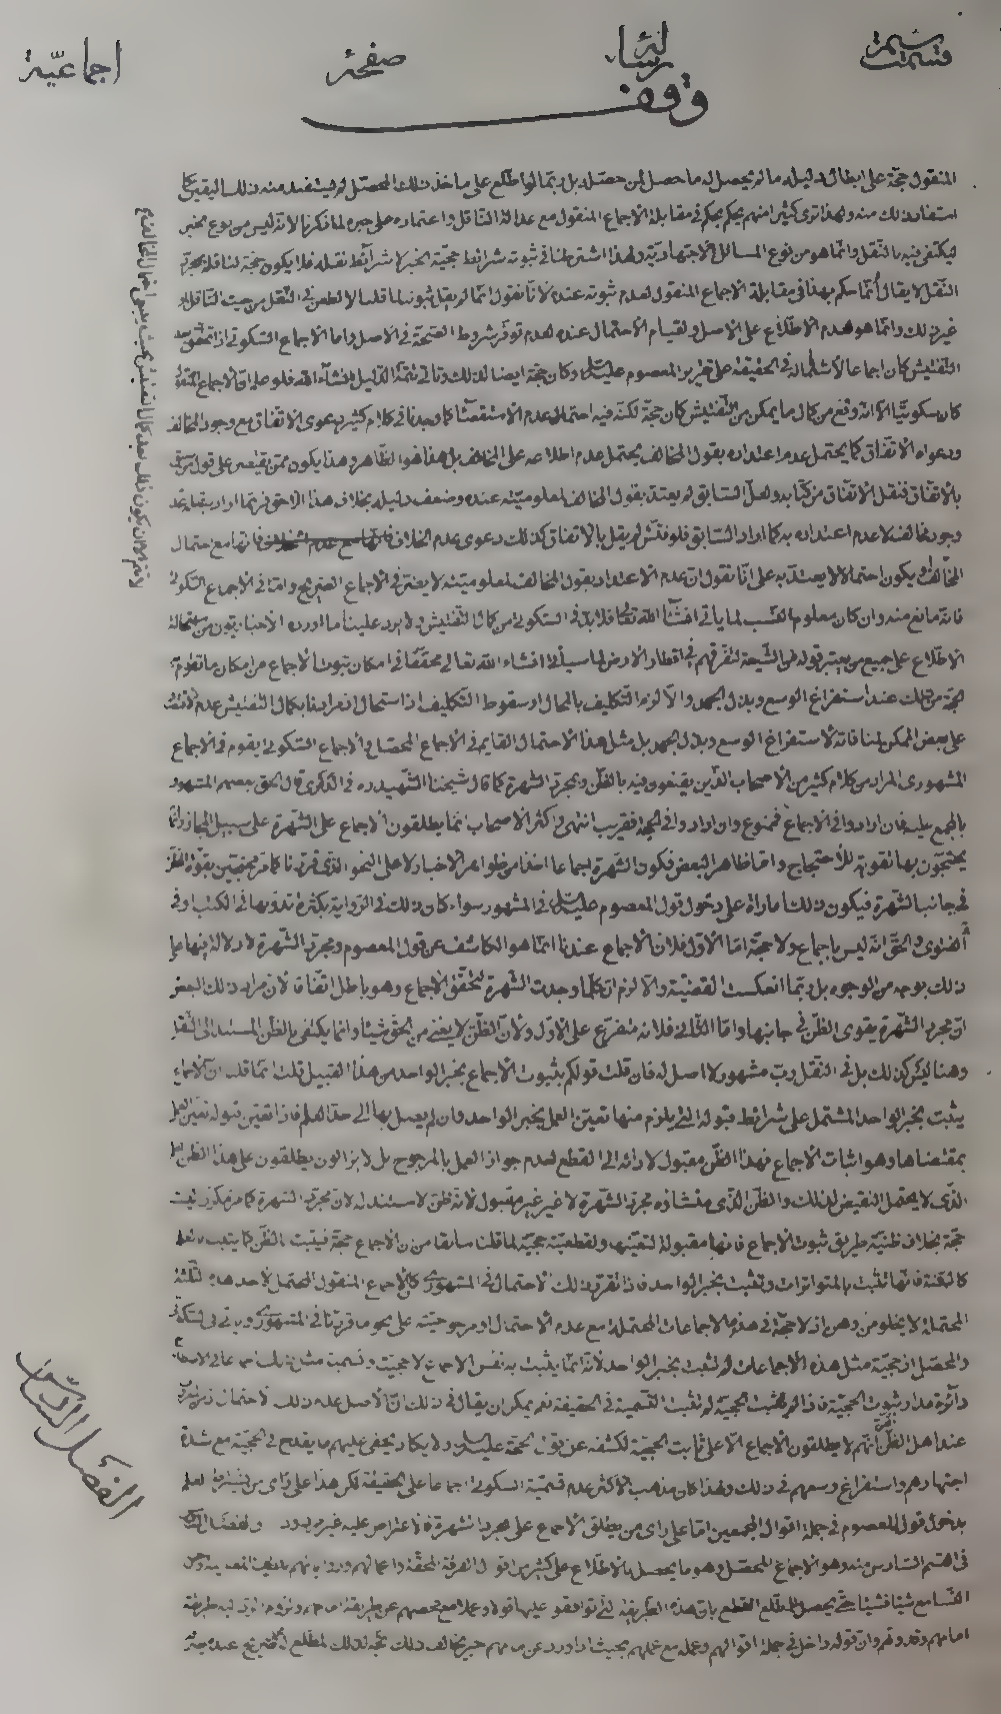 قسمت سيمة
رسالة
صفحۀ
اجماعيّة
وقف
المنقول حجّة على ابطال دليله ما لم يحصل له ما حصل لمن حصّله بل ربّما لو اطّلع على ماخذ ذلك المحصّل لم يستفد منه ذلك اليقين كما
استفاد ذلك منه ولهذا ترى كثيرا منهم يحكم بحكم في مقابلة الاجماع المنقول مع عدالة الناقل واعتماده على خبره لما ذكرنا لانه ليس من نوع الخبر
ليكتفى فيه بالنقل وانّما هو من نوع المسائل الاجتهادية ولهذا اشترطنا في ثبوته شرائط حجّية الخبر لا شرائط نقله فلا يكون حجّة لناقله بمجرّد
النقل لا يقال انّما حكم بهذا في مقابلة الاجماع المنقول لعدم ثبوته عنده لانّا نقول انّما لم يقل بثبوته لما قلنا لا لطعن في النقل من حيث الناقل او
غير ذلك وانّما هو لعدم الاطّلاع على الاصل ولقيام الاحتمال عنده لعدم توفّر شروط الصحّة في الاصل وامّا الاجماع السكوتي اذا تحقّق بعد
التفتيش كان اجماعا لاشتماله في الحقيقة على تقرير المعصوم عليه السلام وكان حجّة ايضا لذلك ويأتي تتمّة الدليل انشاء الله فلو صادق الاجماع
كان سكوتيّا الّا انّه وقع من كمال ما يمكن من التفتيش كان حجّة لكنّه فيه احتمال عدم الاستقصاء كما وجدنا في كلام كثير دعوى الاتّفاق مع وجود المخالف
ودعواه الاتّفاق كما يحتمل عدم اعتداده بقول المخالف يحتمل عدم اطلاعه على المخالف بل هذا هو الظاهر وهذا يكون ممّن يقتصر على قول
بالاتّفاق فنقل الاتّفاق من كتابه ولعلّ السابق لم يعتدّ بقول المخالف لمعلوميّته عنده وضعف دليله بخلاف هذا اللاحق فربّما اراد بنقله عدم
وجود مخالف لا عدم اعتداده به كما اراد السابق فلو فتّش لم يقل بالاتفاق كذلك دعوى عدم الخلاف فانّها مع احتمال
المخالف او يكون احتمالا لا يعتدّ به على انّا نقول انّ عدم الاعتداد بقول المخالف لمعلوميّته لا يضرّ في الاجماع الصريح وامّا في الاجماع السكوتي
فانه مانع منه وان كان معلوم النسب لما يأتي انشآء الله تعالى فلا بدّ في السكوتي من كمال التفتيش ولا يرد علينا ما اورده الاخباريّون من استحالة
الاطّلاع على جميع من يعتبر قوله من الشيعة لتفرّقهم في اقطار الارض لما سيأتي انشاء الله تعالى محقّقا في امكان ثبوت الاجماع من امكان ما تقوم به
الحجّة من ذلك عند استفراغ الوسع وبذل الجهد والّا لزم التكليف بالمحال او سقوط التكليف اذ استحال
على بعض الممكن لمنافاته لاستفراغ الوسع وبذل الجهد بل مثل هذا الاحتمال القايم في الاجماع المحصّل والاجماع السكوتي يقوم في الاجماع
المشهوري المراد من كلام كثير من الاصحاب الذين يقنعون فيه بالظنّ وبمجرّد الشهرة كما قال شيخنا الشهيد ره في الذكرى قال الحق بعضهم المشهور
بالمجمع عليه فان ارادوا في الاجماع فممنوع وان ارادوا في الحجّة فقريب انتهى واكثر الاصحاب انّما يطلقون الاجماع على الشهرة على سبيل المجاز وانّما
يحتجّون بها تقوية للاحتجاج وامّا ظاهر البعض فكون الشهرة اجماعا اخذا من ظواهر الاخبار لا على النحو الذي قرّرنا
في جانب الشهرة فيكون ذلك امارة على دخول قول المعصوم عليه السلام في المشهور سواء كان ذلك في الرواية بكثرة تدوينها في الكتب او في
الفتوى والحقّ انّه ليس باجماع ولا حجّة امّا الاوّل فلانّ الاجماع عندنا انّما هو الكاشف عن قول المعصوم ومجرّد الشهرة لا دلالة فيها على
ذلك بوجه من الوجوه بل ربّما انعكست القضيّة والّا لزم انّه كلّما وجدت الشهرة تحقّق الاجماع وهو باطل اتّفاقا لانّ مراد ذلك البعض
انّ مجرّد الشهرة يقوى الظنّ في جانبها وامّا الثاني فلانه متفرّع على الاوّل ولانّ الظنّ لا يغني من الحقّ شيئا وانما يكتفى بالظنّ المستند الى النقل
وهنا ليس كذلك بل في النقل ربّ مشهور لا اصل له فان قلت قولكم بثبوت الاجماع بخبر الواحد من هذا القبيل قلت انّما قلنا انّ الاجماع
يثبت بخبر الواحد المشتمل على شرائط قبوله التي يلزم منها تعيّن العمل بخبر الواحد وان لم يصل بها الى حدّ العلم فاذا تعيّن قبوله تعيّن العمل
بمقتضاها وهو اثبات الاجماع فهذا الظنّ مقبول لادائه الى القطع لعدم جواز العمل بالمرجوح بل لا يزالون يطلقون على هذا الظنّ العلم
الذي لا يحتمل النقيض لذلك والظنّ الذي منشاؤه مجرّد الشهرة لا غير غير مقبول لانّه ظنّ لا مستند له لانّ مجرّد الشهرة كما مرّ مكرّرا ليست
حجّة بخلاف ظنّية طريق ثبوت الاجماع فانّها مقبولة لتعيّنها ولقطعيّة حجّيته لما قلنا سابقا من انّ الاجماع حجّة فيثبت بالظنّ كما يثبت بالعلم
كالسّنة فانّها تثبت بالمتواترات وتثبت بخبر الواحد فاذا تقرّر ذلك الاحتمال في المشهوري كالاجماع المنقول المحتمل لاحد هذه الثلثة
المحتملة لا يخلو من وهن اذ لا حجّة في هذه الاجماعات المحتملة مع عدم الاحتمال او مرجوحيّته على نحو ما قرّرنا في المشهوري ويأتي في السكوتي
والمحصّل انّ حجّية مثل هذه الاجماعات لم تثبت بخبر الواحد لانّه انّما يثبت به نفس الاجماع لا حجيّته وتسمية مثل ذلك اجماعا في الاصطلاح
دائرة مدار ثبوت الحجيّة فاذا لم تثبت الحجيّة لم تثبت التسمية في الحقيقة نعم يمكن ان يقال في ذلك انّ الاصل عدم ذلك الاحتمال
عند اهل الظنّ انّهم لا يطلقون الاجماع الّا على ثابت الحجيّة لكشفه عن قول الحجّة عليه السلام ولا يكاد يخفى عليهم ما يقدح في الحجيّة مع شدة
اجتهادهم واستفراغ وسعهم في ذلك ولهذا كان مذهب الاكثر عدم تسميّة السكوتي اجماعا على الحقيقة لكن هذا على رأى من يشترط العلم
بدخول قول المعصوم في جملة اقوال المجمعين امّا على راى من يطلق الاجماع على مجرّد الشهرة فلاعتراض عليه غير مردود
في القسم السادس منه وهو الاجماع المحصّل وهو ما يحصل بالاطّلاع على كثير من اقوال الفرقة المحقّة واعمالهم
التسامع شيئا فشيئا حتّى يحصل للمطّلع القطع بانّ هذه الطريقة التي توافقوا عليها قولا وعملا مع فحصهم عن طريقة
امامهم وقدوتهم وانّ قوله داخل في جملة اقوالهم وعمله مع عملهم بحيث اذا ورد عن امامهم خبر يخالف ذلك
الفصل السادس